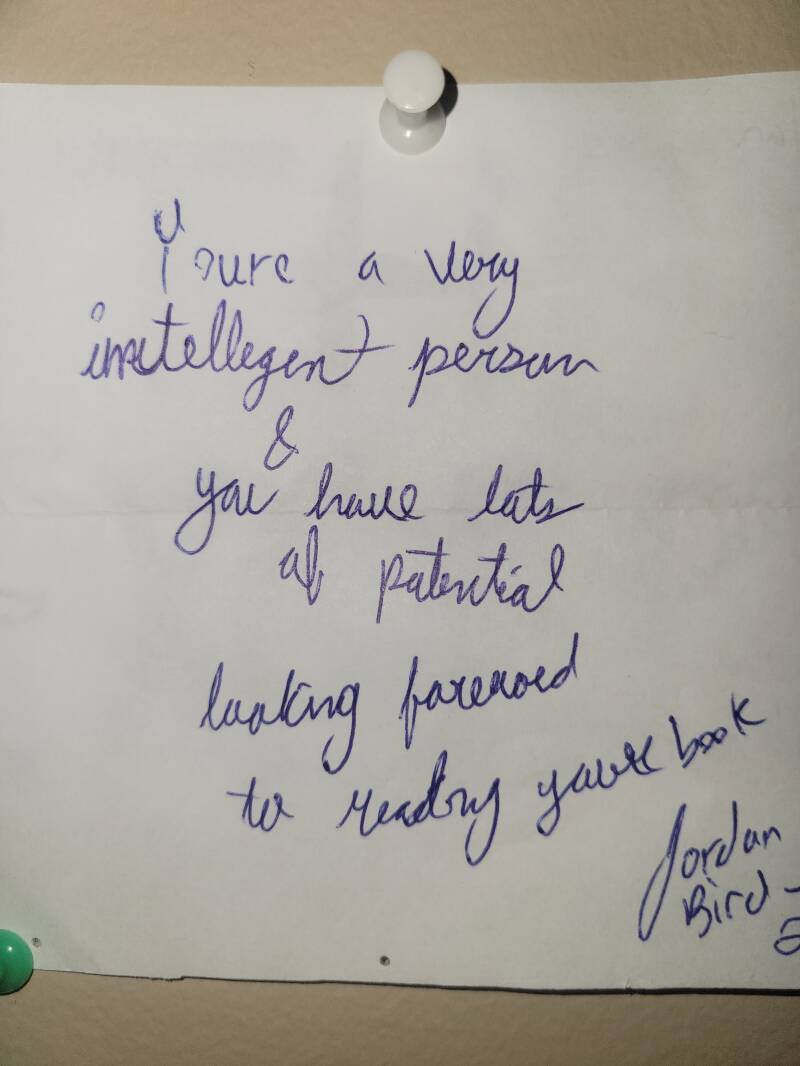 Youre a very
intellegent person
&
you have lots
of potential
looking foreword
to reading your book
Jordan
Bird -
2